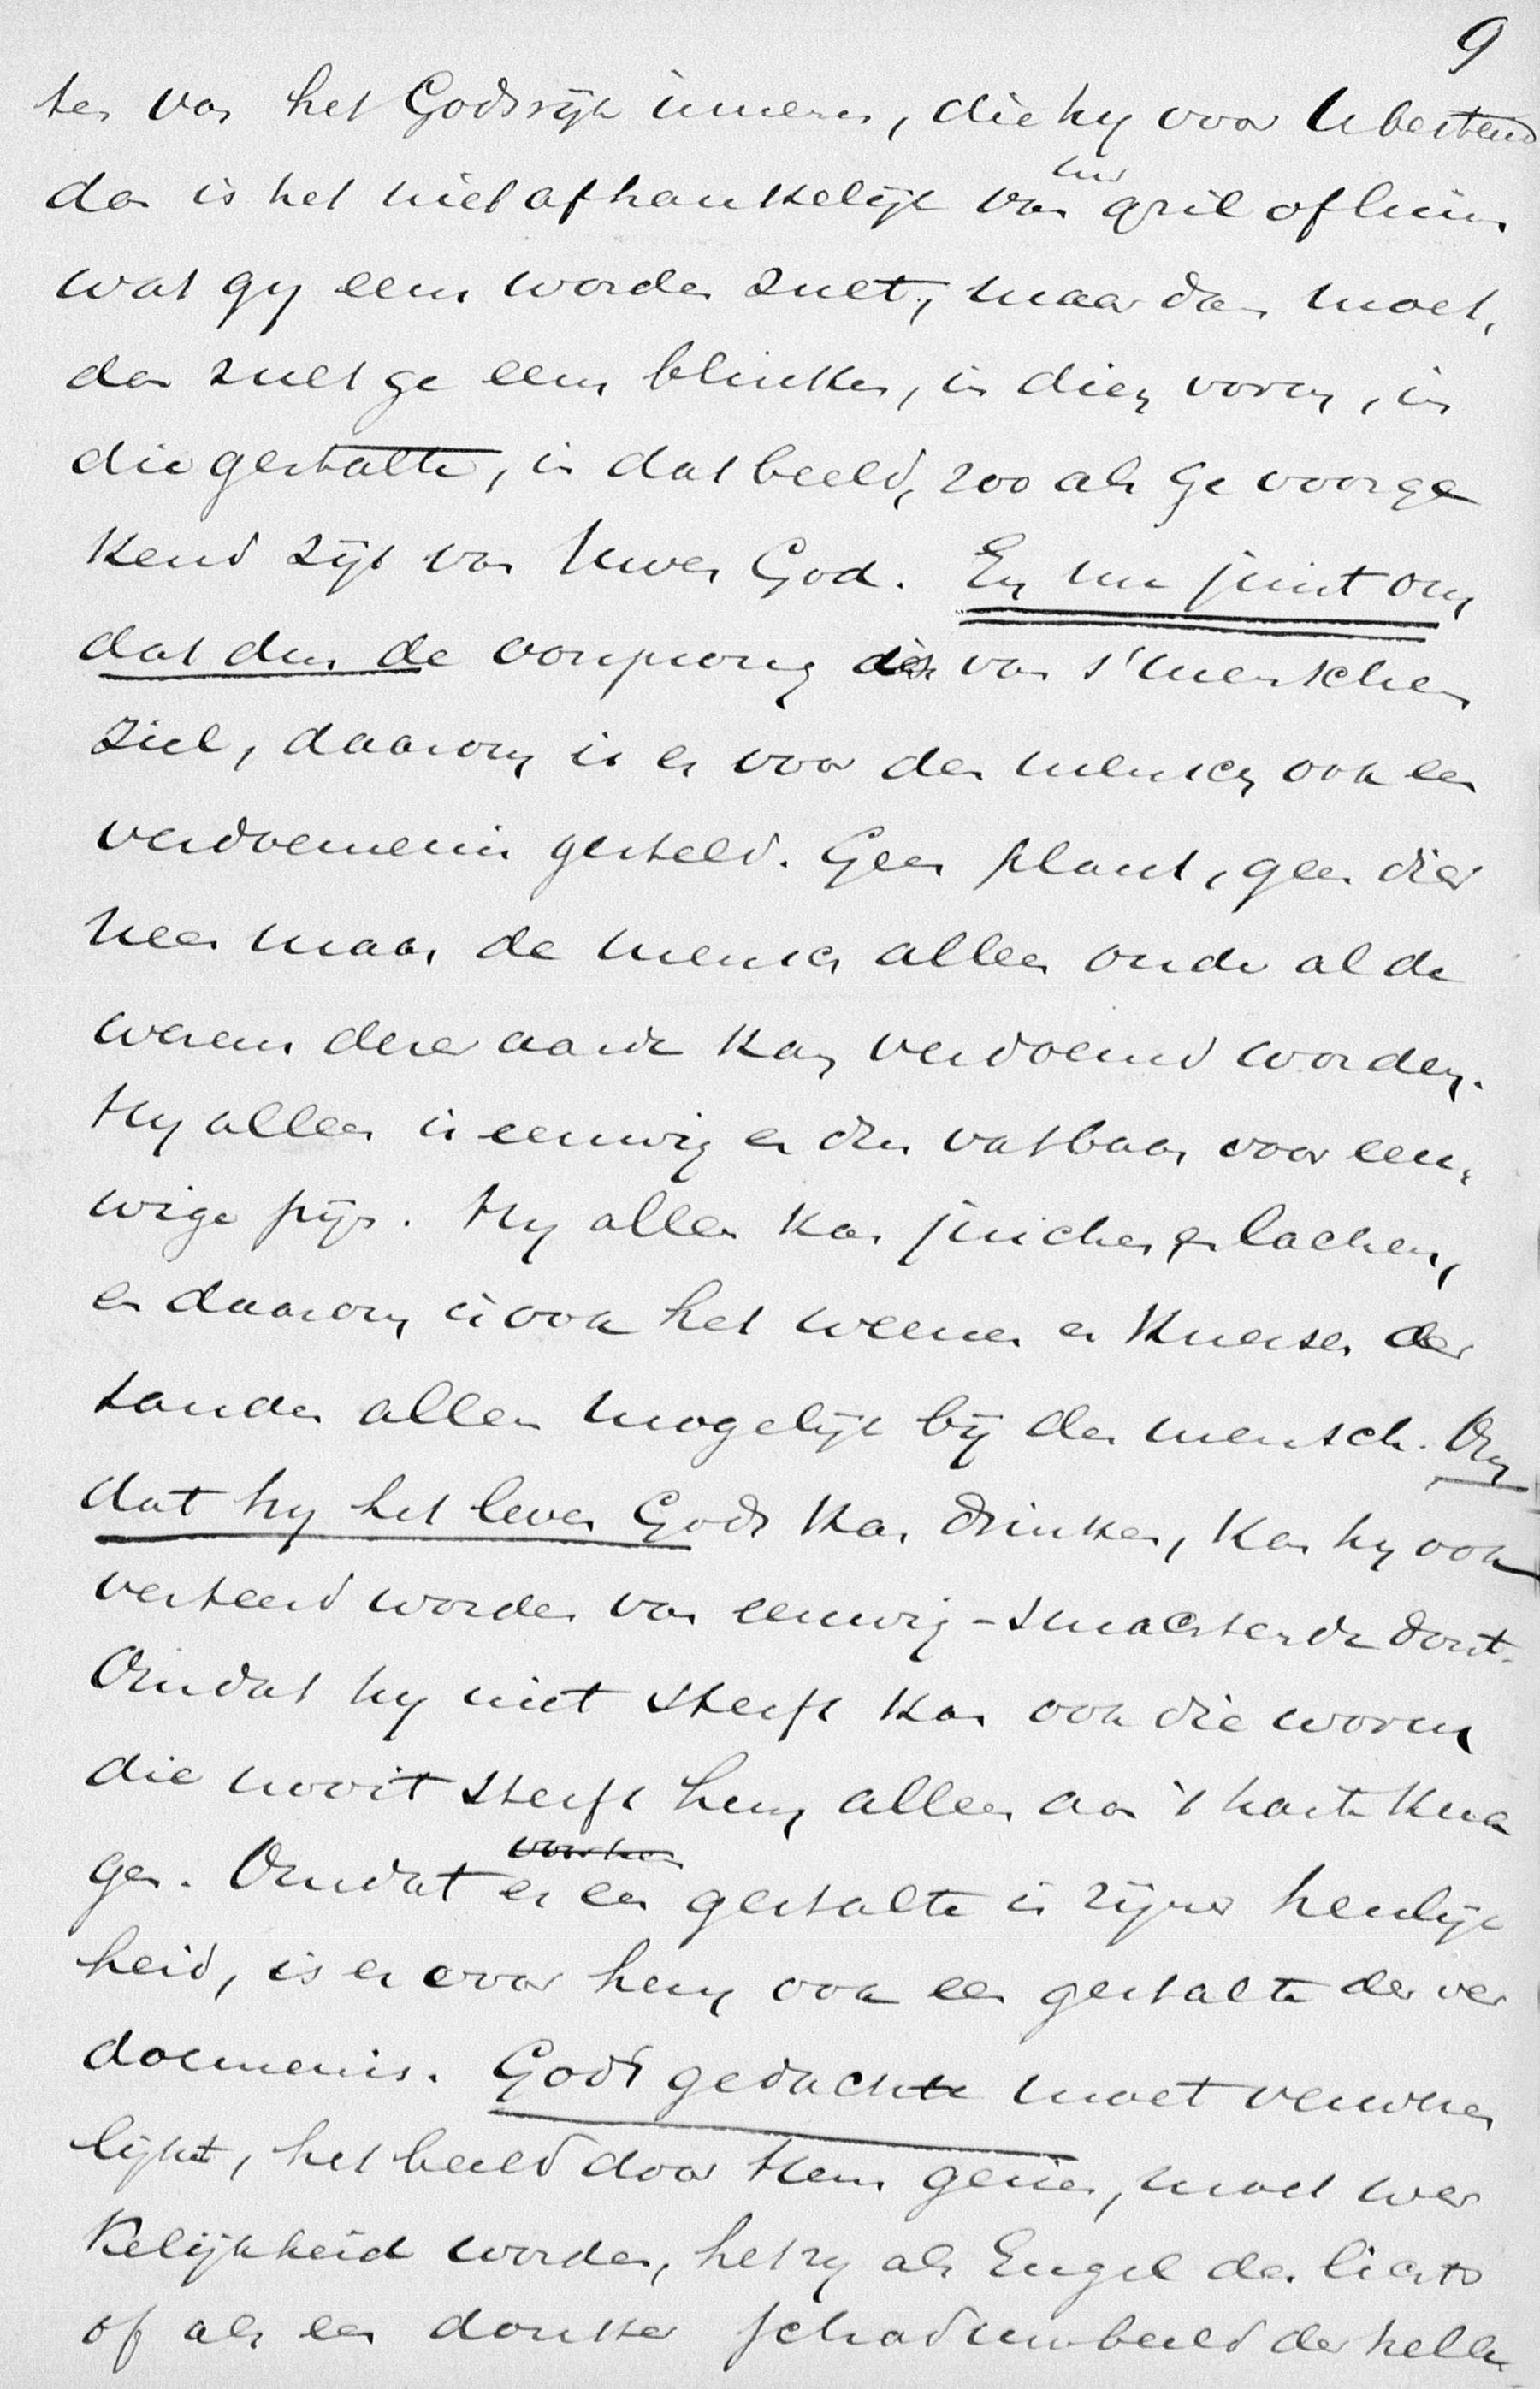 9
ten van het Godsrijk immers, die hy voor U bestemd
dan is het niet afhankelijk van uw gril of luim
wat gy eens worden zult, maar dan moet,
dan zult ge eens blinken, in dien vorm, in
die gestalte, in dat beeld, zoo als Ge voorge
kend zijt van Uwen God. En nu juist om
dat dus de oorsprong is van s'menschen
ziel, daarom is er voor den mensch ook een
verdoemenis gesteld. Geen plant, geen dier
neen maar de mensch alleen onder al de
wezens dezer aarde kan verdoemd worden.
Hy alleen is eeuwig en dus vatbaar voor eeu-
wige pijn. Hy alleen kan juichen en lachen,
en daarom is ook het weenen en knersen der
tanden alleen mogelijk bij den mensch. Om
dat hy het leven Gods kan drinken, kan hy ook
verteerd worden van eeuwig-smachtende dorst.
Omdat hy niet sterft kan ook die worm
die nooit sterft hem alleen aan 't harte kna
gen. Omdat er een gestalte is zijner heerlijk
heid, is er voor hem ook een gestalte der ver
doemenis. Gods gedachte moet verwezen
lijkt, het beeld door Hem gezien, moet wer
kelijkheid worden, hetzy als Engel des lichts
of als een donker schaduwbeeld der helle